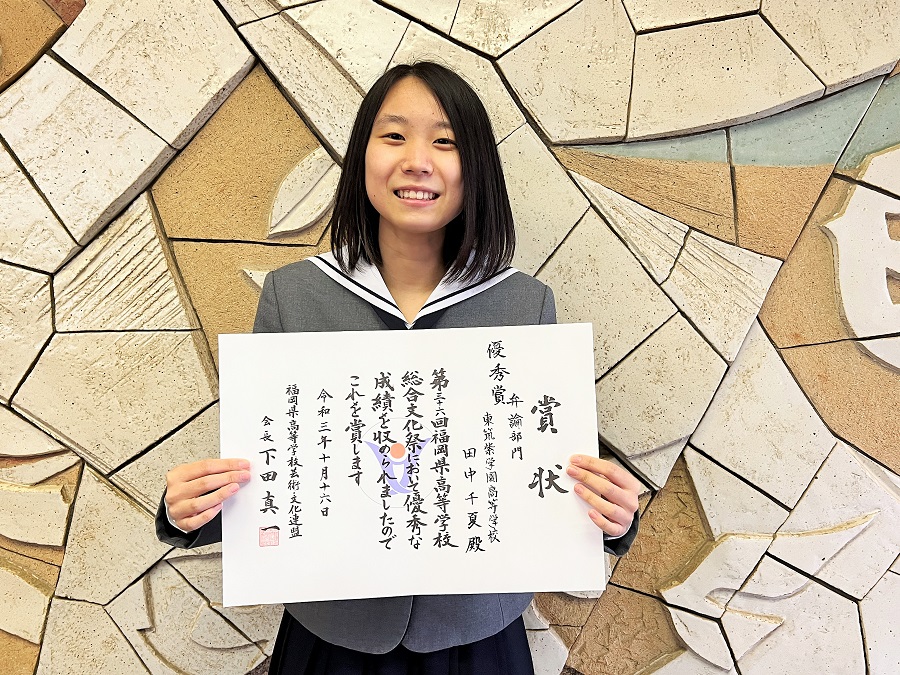 賞状
優秀賞 弁論部門
東筑紫学園高等学校
田中千夏殿
第三十六回福岡県高等学校
総合文化祭において優秀な
成績を収められましたので
これを賞します
令和三年十月十六日
福岡県高等学校芸術文化連盟
会長 下田真一